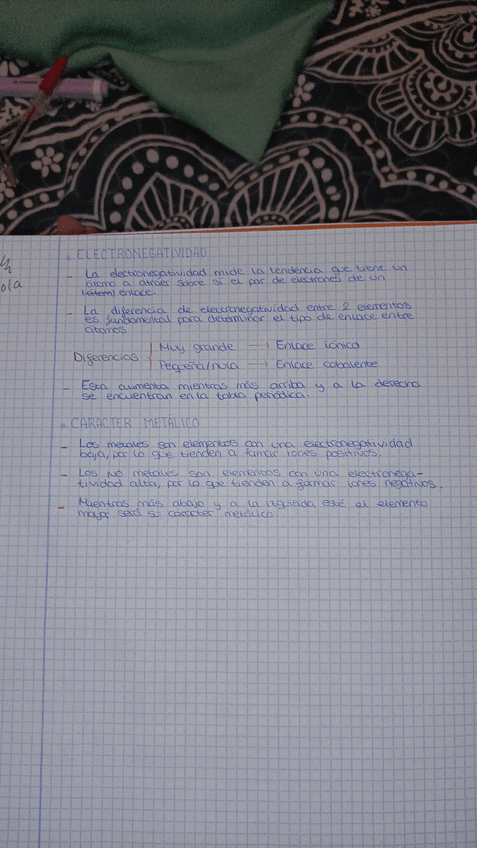 ELECTRONEGATIVIDAD
- La electronegatividad mide la tendencia que tiene un
átomo a atraer sobre sí el par de electrones de un
enlace.
- La diferencia de electronegatividad entre 2 elementos
es fundamental para determinar el tipo de enlace entre
átomos
Diferencias
Muy grande → Enlace iónico
Pequeña/nula → Enlace cobalente
- Esta aumenta mientras más arriba y a la derecha
se encuentran en la tabla periódica.
CARACTER METÁLICO
- Los metales son elementos con una electronegatividad
baja, por lo que tienden a formar iones positivos.
- Los NO metales son elementos con una electronega-
tividad alta, por lo que tienden a formar iones negativos.
- Mientras más abajo y a la izquieida esté el elemento
mayor será su carácter metálico.
ola